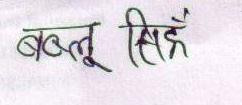 बब्लू सिहँ